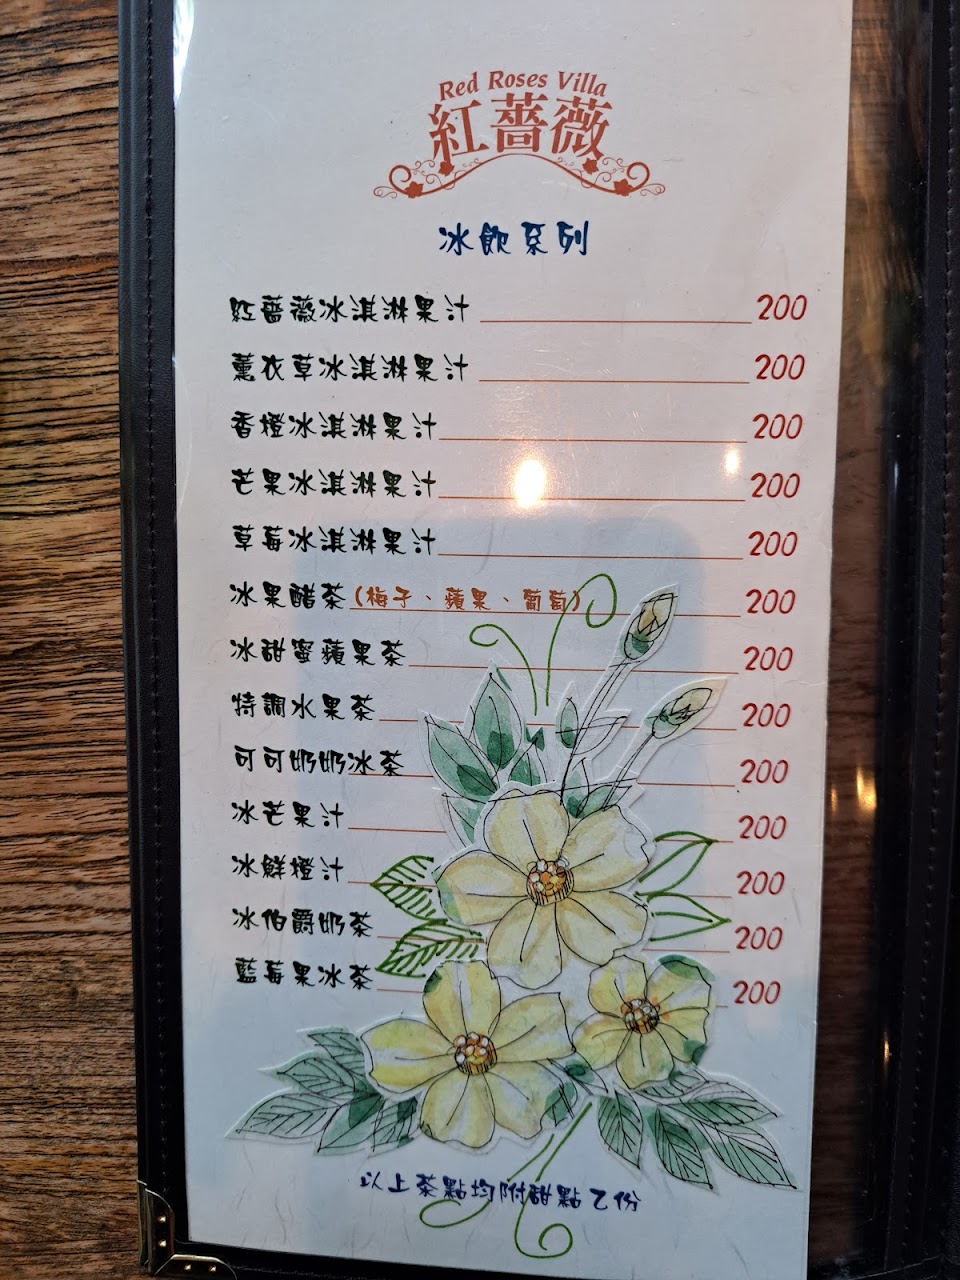 Red Roses Villa
紅薔薇
冰飲系列
紅薔薇冰淇淋果汁 200
薰衣草冰淇淋果汁 200
香橙冰淇淋果汁 200
芒果冰淇淋果汁 200
草莓冰淇淋果汁 200
冰果醋茶(梅子、蘋果、葡萄) 200
冰甜蜜蘋果茶 200
特調水果茶 200
可可奶奶冰茶 200
冰芒果汁 200
冰鮮橙汁 200
冰伯爵奶茶 200
藍莓果冰茶 200
以上茶點均附甜點乙份